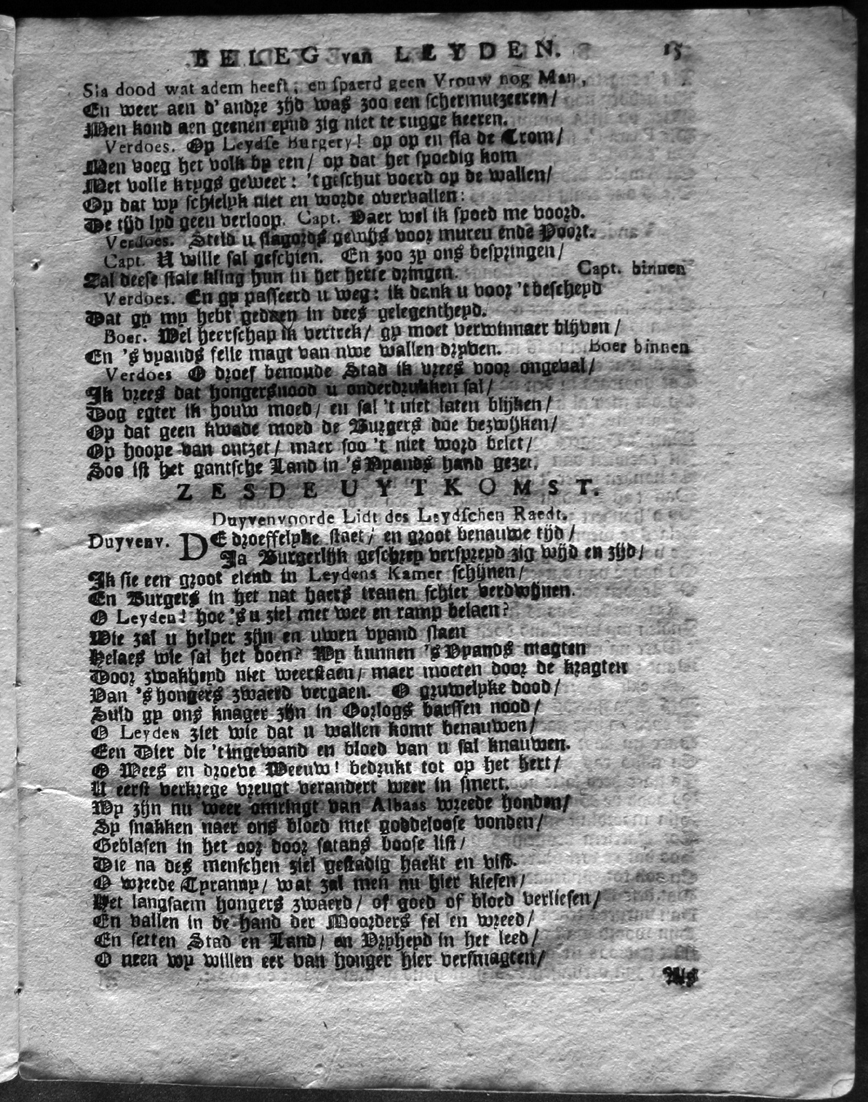 BELEG van LEYDEN. 15
Sla dood wat adem heeft; en spaerd geen Vrouw nog Man,
En weer aen d'andze zijd was zoo een schermutzeeren/
Men kond aen geenen eynd zig niet te rugge keeren.
Verdoes. Op Leydse Burgery! op op en sla de Trom/
Men voeg het volk by een/ op dat het spoedig kom
Met volle krygs geweer: 't geschut voerd op de wallen/
Op dat wy schielyk niet en worde overvallen:
De tijd lyd geen verloop. Capt. Daer wel ik spoed me voord.
Verdoes. Steld u slagords gewijs voor muren ende Poort.
Capt. U wille sal geschien. En zoo zy ons bespringen/
Zal deese stale kling hun in het herte dringen. Capt. binnen
Verdoes. En gy passeerd u weg: ik dank u voor 't bescheyd
Dat gy my hebt gedaen in dees gelegentheyd.
Boer. Wel heerschap ik vertrek/ gy moet verwinnaer blijven/
En 's vyands felle magt van uwe wallen dryven. Boer binnen
Verdoes O droef benoude Stad ik vrees voor ongeval/
Ik vrees dat hongersnood u onderdrukken sal/
Dog egter ik houw moed/ en sal 't niet laten blijken/
Op dat geen kwade moed de Burgers doe bezwijken/
Op hoope van ontzet/ maer soo 't niet word belet/
Soo ist het gantsche Land in 's Vpands hand gezet.
ZESDE UYTKOMST.
Duyvenvoorde Lidt des Leydschen Raedt.
Duyvenv. DE droeffelyke staet/ en groot benauwe tijd/
Ja Burgerlijk geschrey verspreyd zig wijd en zijd/
Ik sie een groot elend in Leydens Kamer schijnen/
En Burgers in het nat haers tranen schier verdwijnen.
O Leyden! hoe 's u ziel met wee en ramp belaen?
Wie zal u helper zijn en uwen vyand staen
Helaes wie sal het doen? Wy kunnen 's Vyands magten
Door zwakheyd niet weerstaen/ maer moeten door de kragten
Van 's hongers zwaerd vergaen. O gruwelyke dood/
Suld gy ons knager zijn in Oorlogs barssen nood/
O Leyden ziet wie dat u wallen komt benauwen/
Een Dier die 't ingewand en bloed van u sal knauwen.
O Wees en droeve Weeuw! bedrukt tot op het hert/
U eerst verkrege vreugt verandert weer in smert.
Wy zijn nu weer omringt van Albaas wreede honden/
Sy snakken naer ons bloed met goddeloose vonden/
Geblasen in het oor door satans boose list/
Die na des menschen ziel gestadig haekt en vist.
O wreede Tyranny/ wat zal men nu hier kiesen/
Het langsaem hongers zwaerd/ of goed of bloed verliesen/
En vallen in de hand der Moorders fel en wreed/
En setten Stad en Land/ en Vryheyd in het leed/
O neen wy willen eer van honger hier versmagten/
Als